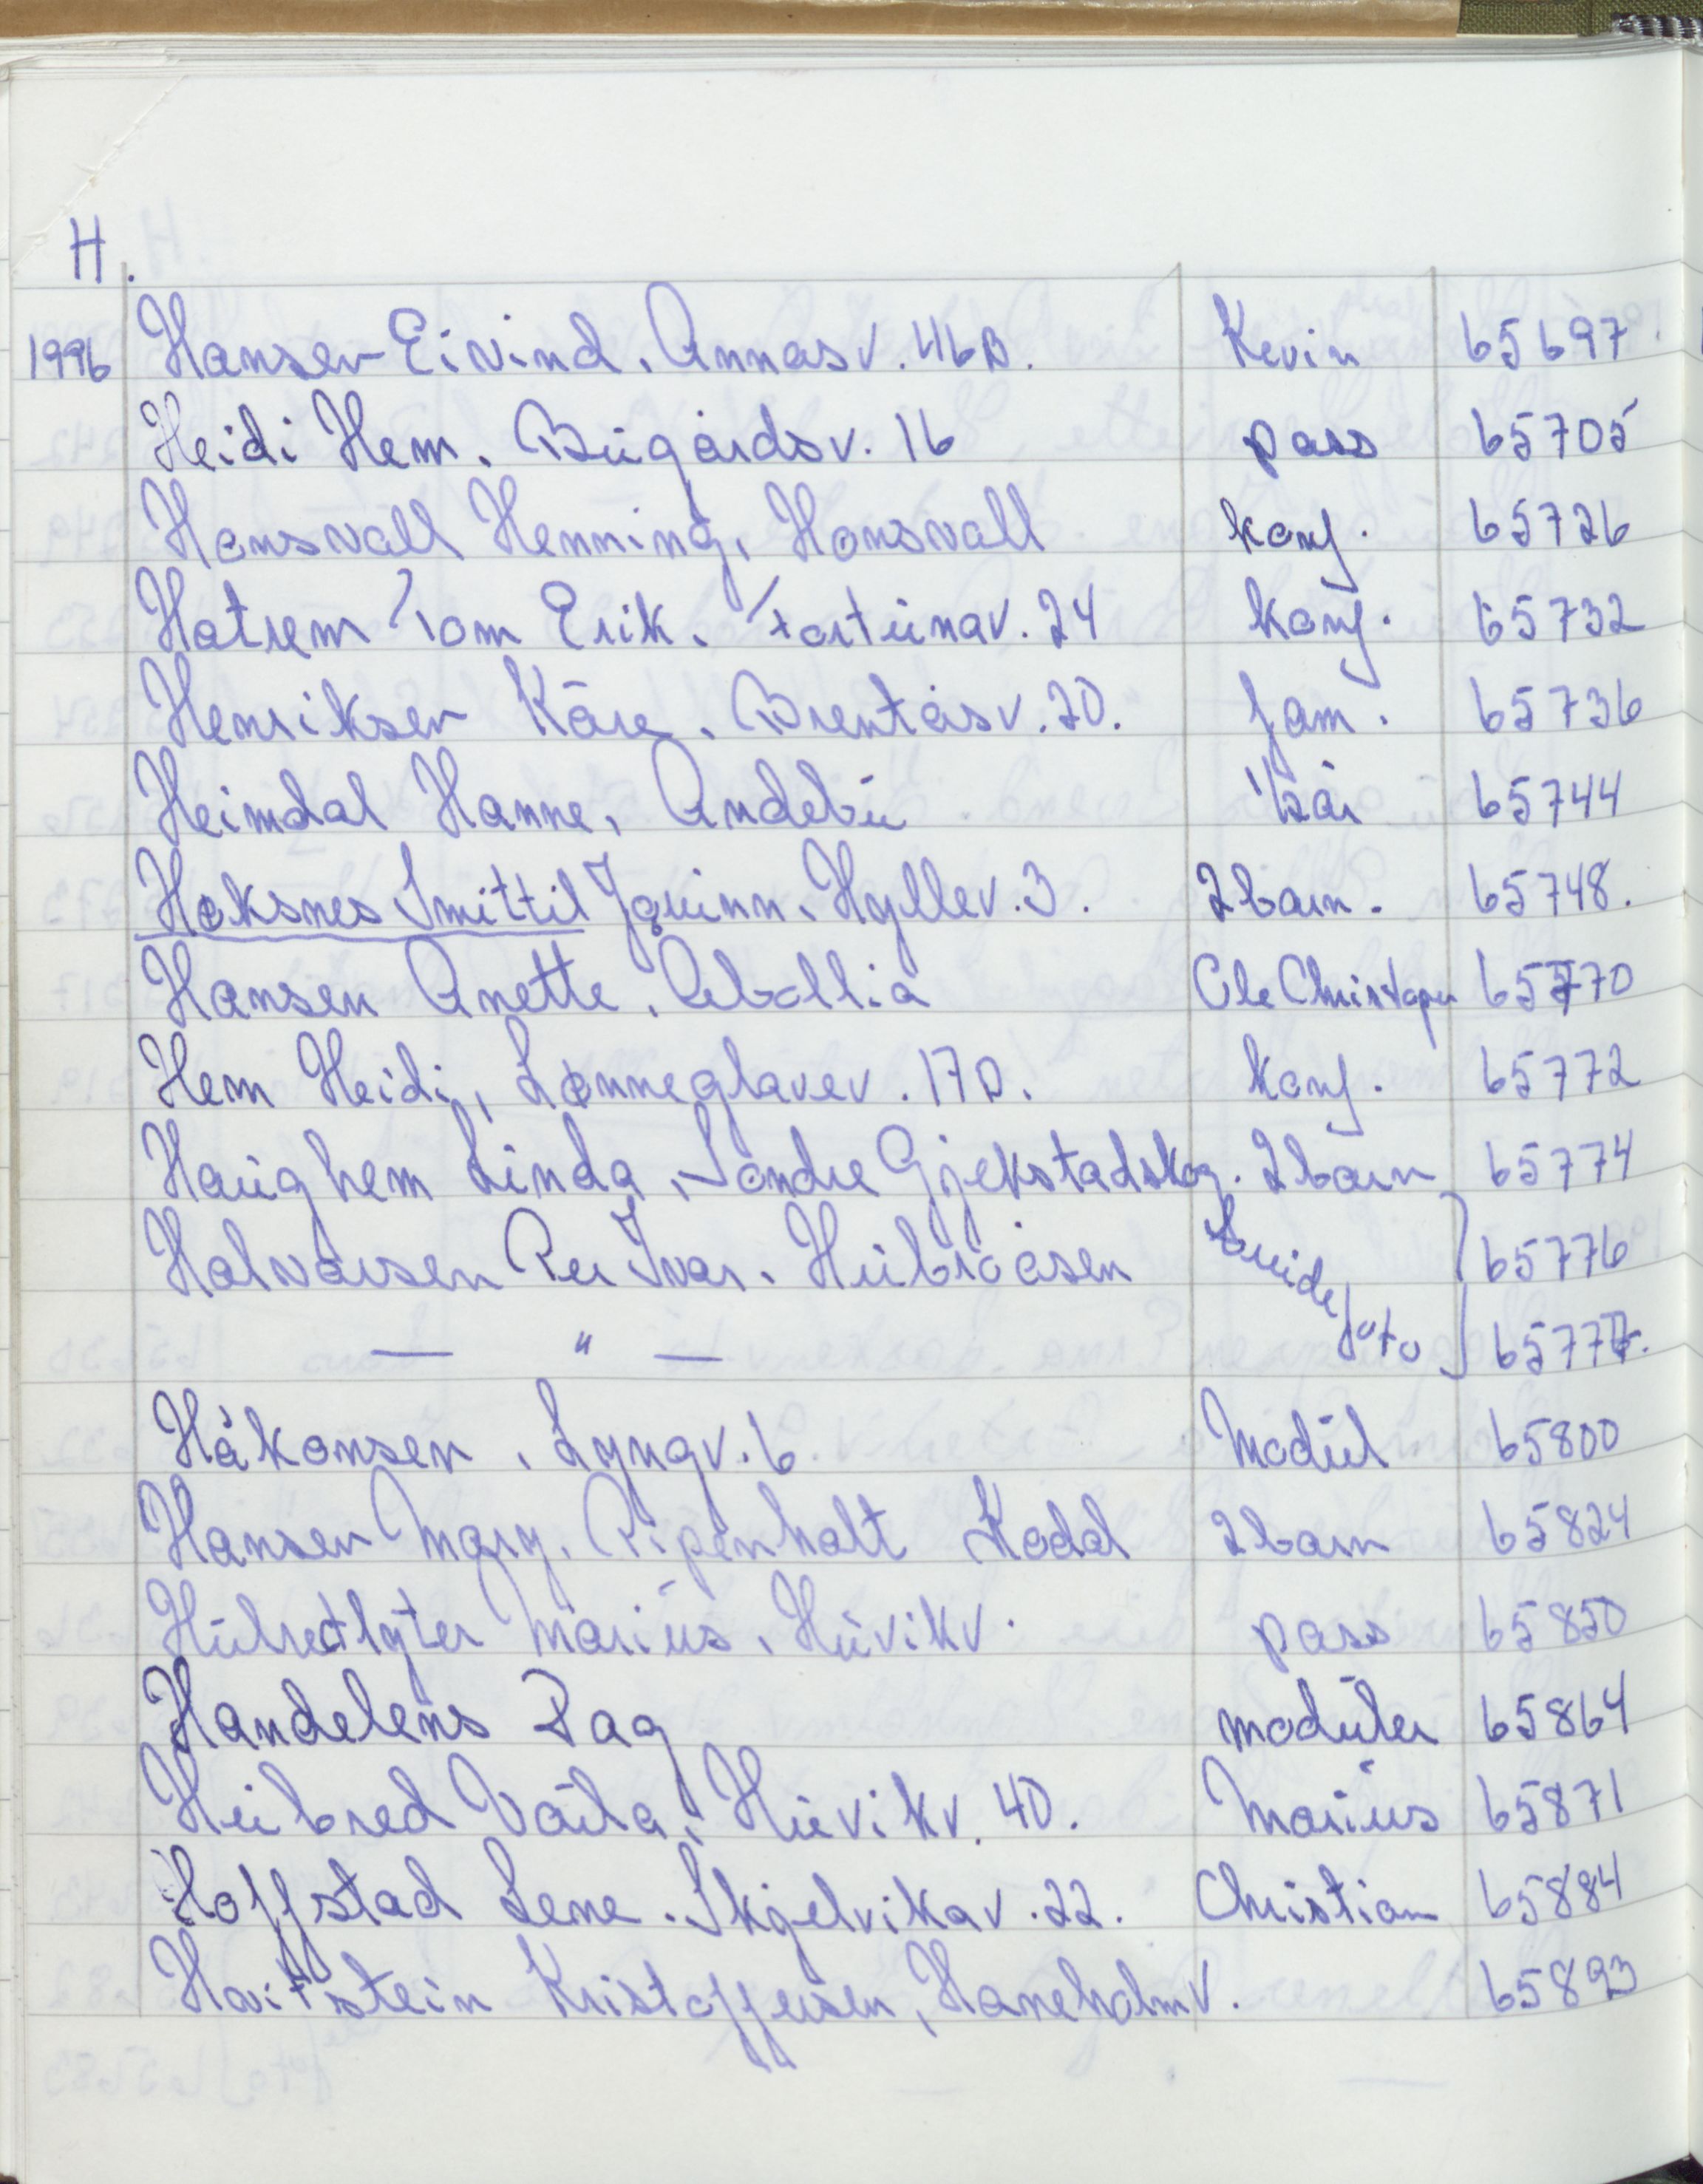 H.
1996 Hansen Eivind. Annasv. 46B. Kevin 65697
Heidi Hem. Bugårdsv. 16 pass 65705
Honsvall Henning, Honsvall konf. 65726
Hotrem Tom Erik. Fortunav. 24 konf. 65732
Henriksen Kåre. Brentåsv. 20. fam. 65736
Heimdal Hanne, Andebu ½år 65744
Hoksnes Smittil Jorunn. Hyllev. 3. 2 barn. 65748.
Hansen Anette. Abollia Ole Christoper 65770
Hem Heidi, Lønneglavev. 17B. konf. 65772
Haughem Linda, Søndre Gjekstadskog. 2 barn 65774
Halvorsen Per Ivar. Hubroåsen Brude 65776
— " — foto 65777.
Håkonsen, Lyngv. 6 Modul 65800
Hansen Mary. Ripenholt Kodal 2 barn 65824
Marius. Huvikv. pass 65850
Handelens Dag moduler 65864
Hubred Vårla, Huvikv. 40. Marius 65871
Hoffstad Lene. Skjelvikav. 22. Christian 65884
Havstein Kristoffersen, Haneholmv. 65893